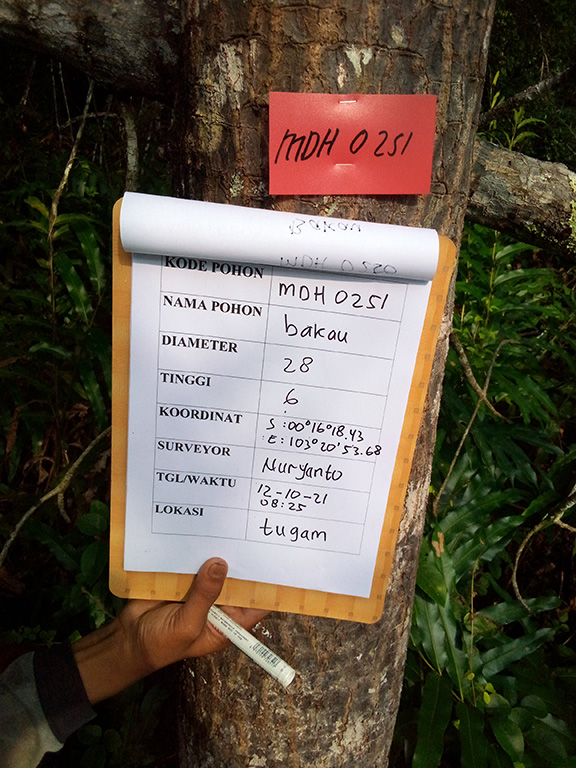 MDH 0251
Bakau
KODE POHON MDH 0251
NAMA POHON bakau
DIAMETER 28
TINGGI 6
KOORDINAT S : 00°16'18.43
E : 103°20'53.68
SURVEYOR Nuryanto
TGL/WAKTU 12-10-21
08:25
LOKASI tugam